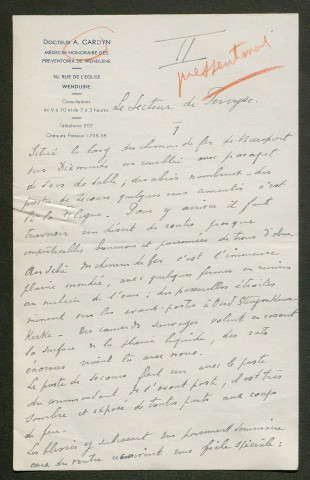 DOCTEUR A. CARDYN
MÉDECIN HONORAIRE DES
PREVENTORIA DE WENDUINE
16, RUE DE L'EGLISE
WENDUINE
Consultations
de 9 à 10 et de 7 à 3 heures
Téléphone 302
II
Le Secteur de Pervyse.
I
Situé le long du chemin de fer de Nieuport
vers Dixmude un remblai avec parapet
de sacs de sable, des abris nombreux, des
postes de secours quelques uns cimentés c'est
là la 1e ligne. Pour y arriver il faut
travers un de routes presque
et parsemées de trous d'obus
Au delà du chemin de fer c'est l'immense
plaine inondée, avec quelques fermes en ruines
au milieu de l'eau; des passerelles étroites
mènent vers les avant-postes à Oud Stuyvenskens
Kerke. Des canards sauvages volent en rasant
la surface de la plaine liquide, des rats
énormes vivent là avec nous.
Le poste de secours fait un avec le poste
du commandant de l'avant poste, il est très
sombre et exposé de toutes parts aux coups
de feu.
Les blessés y subissent un pansement sommaire
ceux du ventre une fiche spéciale: